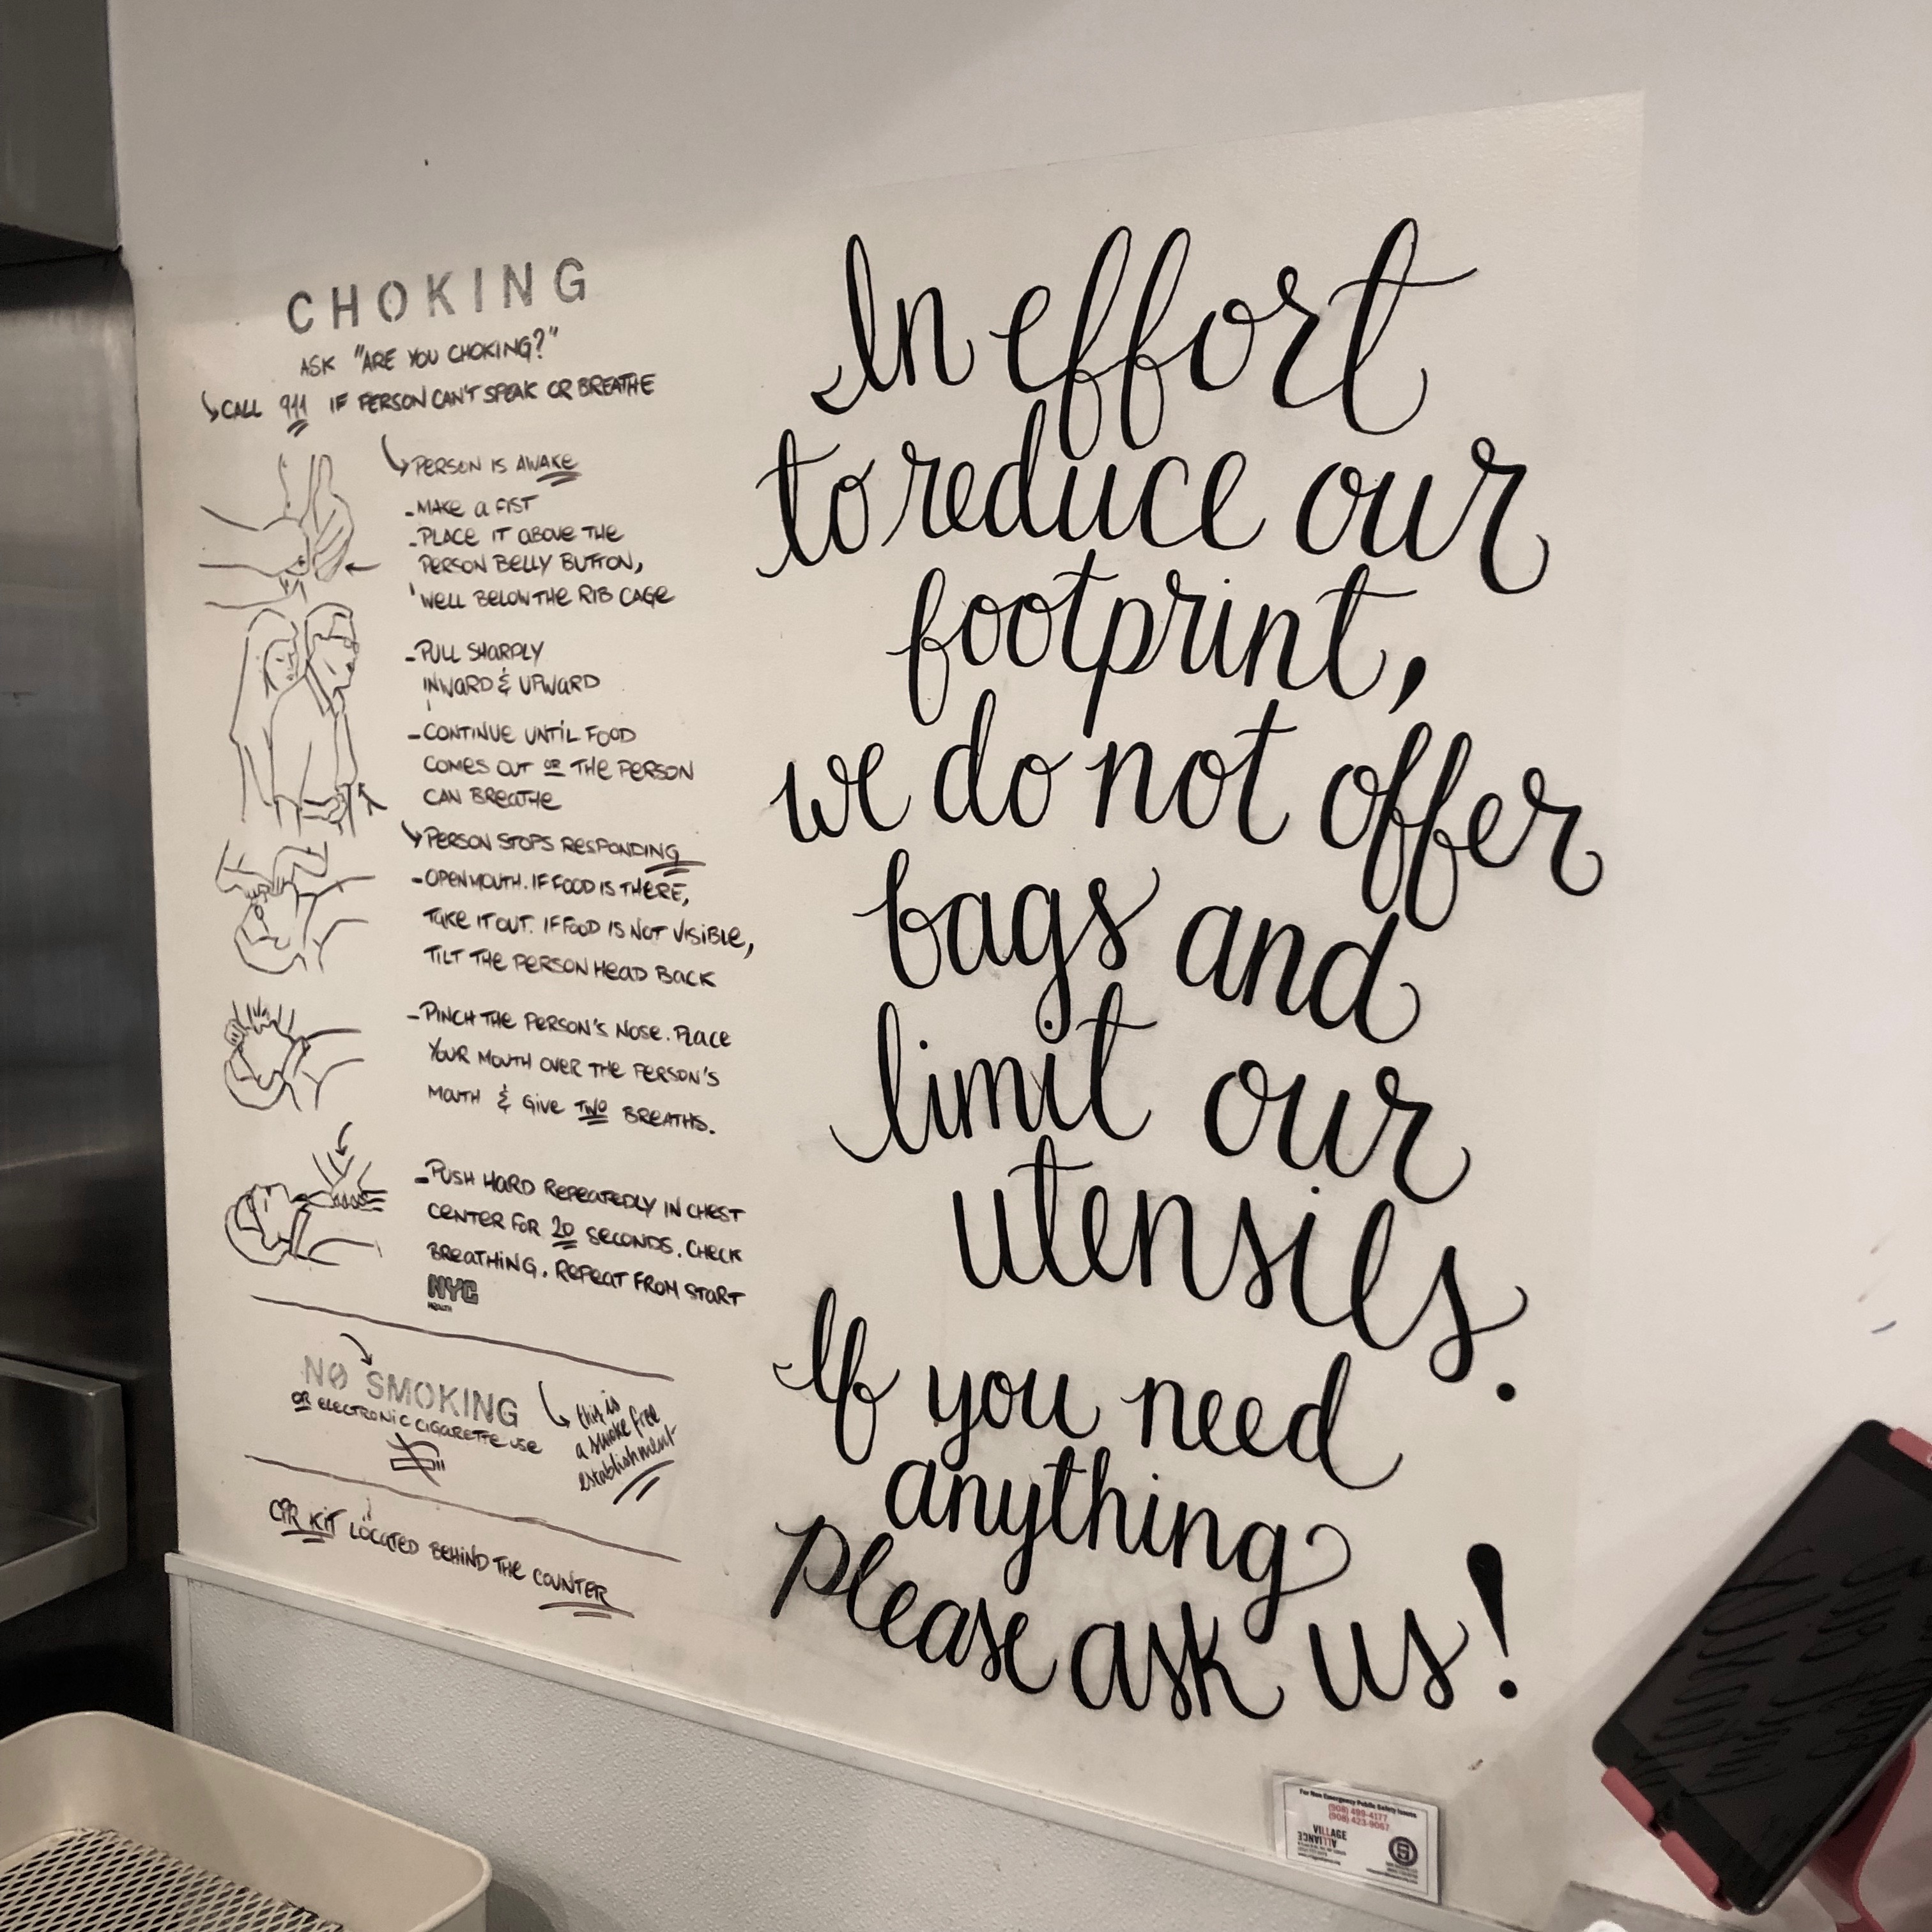 CHOKING
ASK "ARE YOU CHOKING?"
CALL 911 IF PERSON CAN'T SPEAK OR BREATHE
PERSON IS AWAKE
-MAKE A FIST
-PLACE IT ABOVE THE
PERSON BELLY BUTTON,
WELL BELOW THE RIB CAGE
-PULL SHARPLY
INWARD & UPWARD
-CONTINUE UNTIL FOOD
COMES OUT OR THE PERSON
CAN BREATHE
PERSON STOPS RESPONDING
-OPEN MOUTH. IF FOOD IS THERE,
TAKE IT OUT. IF FOOD IS NOT VISIBLE,
TILT THE PERSON HEAD BACK
-PINCH THE PERSON'S NOSE. PLACE
YOUR MOUTH OVER THE PERSON'S
MOUTH & GIVE TWO BREATHS.
-PUSH HARD REPEATEDLY IN CHEST
CENTER FOR 20 SECONDS. CHECK
BREATHING. REPEAT FROM START
NYC
HEALTH
NO SMOKING
OR ELECTRONIC CIGARETTE USE
this is
a smoke free
establishment
CPR KIT LOCATED BEHIND THE COUNTER
In effort
to reduce our
footprint,
we do not offer
bags and
limit our
utensils.
If you need
anything
Please ask us!
For Non Emergency Public Safety Issues
(908) 489-4177
(908) 423-9067
VILLAGE
ALLIANCE